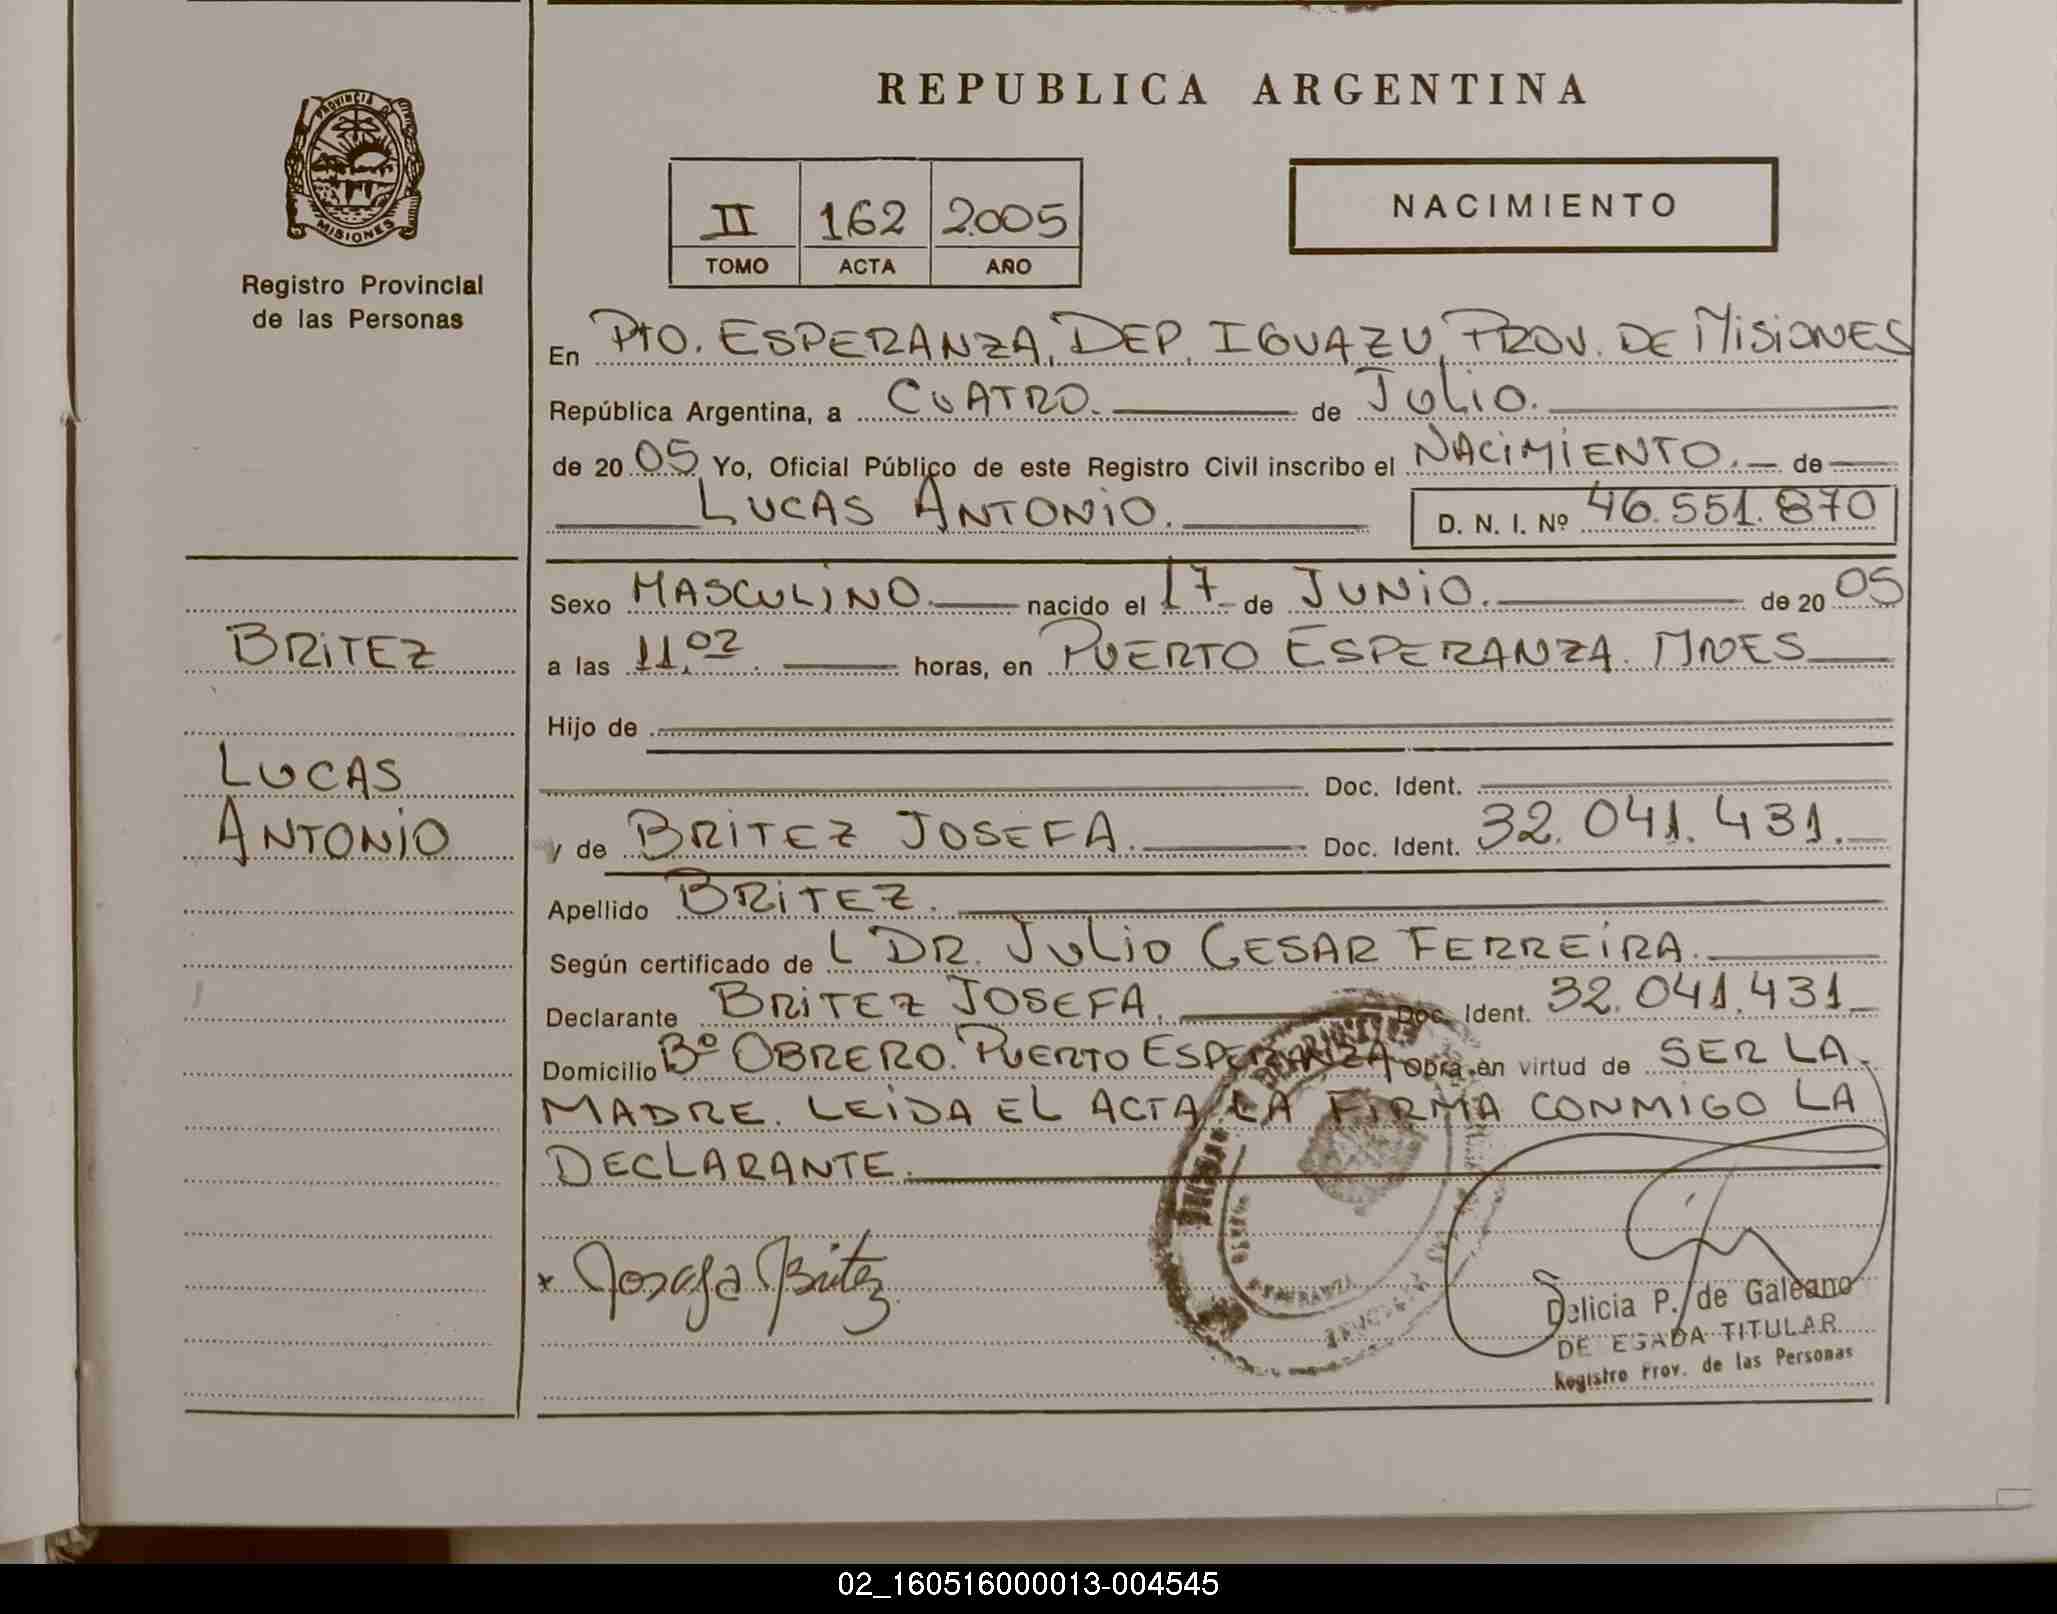 PROVINCIA DE
MISIONES
Registro Provincial
de las Personas
REPUBLICA ARGENTINA
II 162 2005
TOMO ACTA AÑO
NACIMIENTO
En PTO. ESPERANZA, DEP. IGUAZU, PROV. DE MISIONES
República Argentina, a CUATRO. de JULIO.
de 2005 Yo, Oficial Público de este Registro Civil inscribo el NACIMIENTO. de
LUCAS ANTONIO. D. N. I. Nº 46.551.870
Sexo MASCULINO. nacido el 17 de JUNIO. de 2005
a las 11.02. horas, en PUERTO ESPERANZA. MNES
Hijo de
Doc. Ident.
y de BRITEZ JOSEFA. Doc. Ident. 32.041.431.
Apellido BRITEZ.
Según certificado de L DR. JULIO CESAR FERREIRA.
Declarante BRITEZ JOSEFA. Doc. Ident. 32.041.431
Domicilio Bº OBRERO. PUERTO ESPERANZA Obra en virtud de SER LA
MADRE. LEIDA EL ACTA LA FIRMA CONMIGO LA
DECLARANTE.
x Josefa Britez
Delicia P. de Galeano
DELEGADA TITULAR
Registro Prov. de las Personas
BRITEZ
LUCAS
ANTONIO
02_160516000013-004545